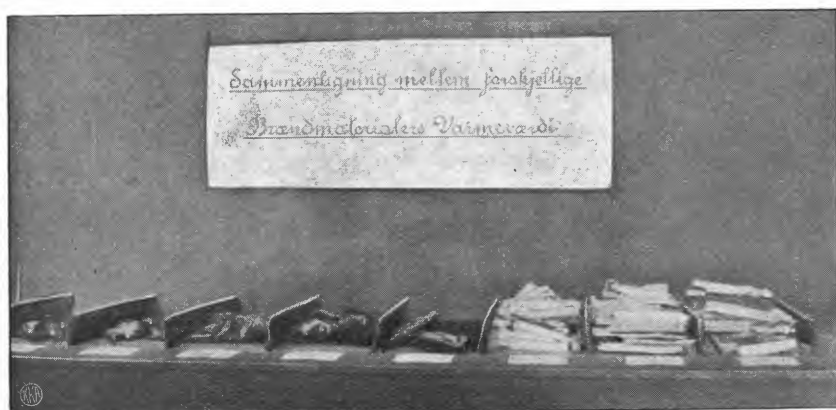 Sammenligning mellem forskjellige
Brændmaterialers Varmeværdi
KKA